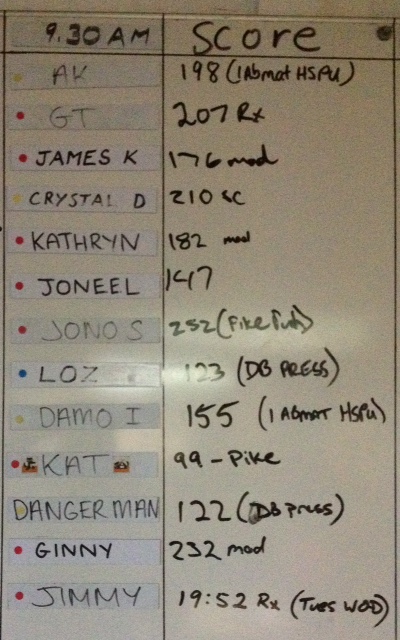 9.30 AM Score
AK 198 (1 Abmat HSPU)
GT 207 Rx
JAMES K 176 mod
CRYSTAL D 210 sc
KATHRYN 182 mod
JONEEL 147
JONO S 252 (Pike Push)
LOZ 123 (DB PRESS)
DAMO I 155 (1 ABmat HSPU)
KAT 99 - Pike
DANGERMAN 122 (DB press)
GINNY 232 mod
JIMMY 19:52 Rx (Tues WOD)